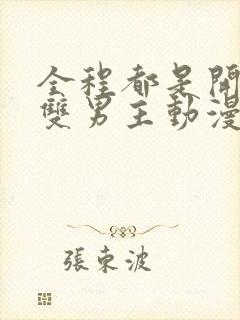 全程都是開
雙男主動漫
張東波